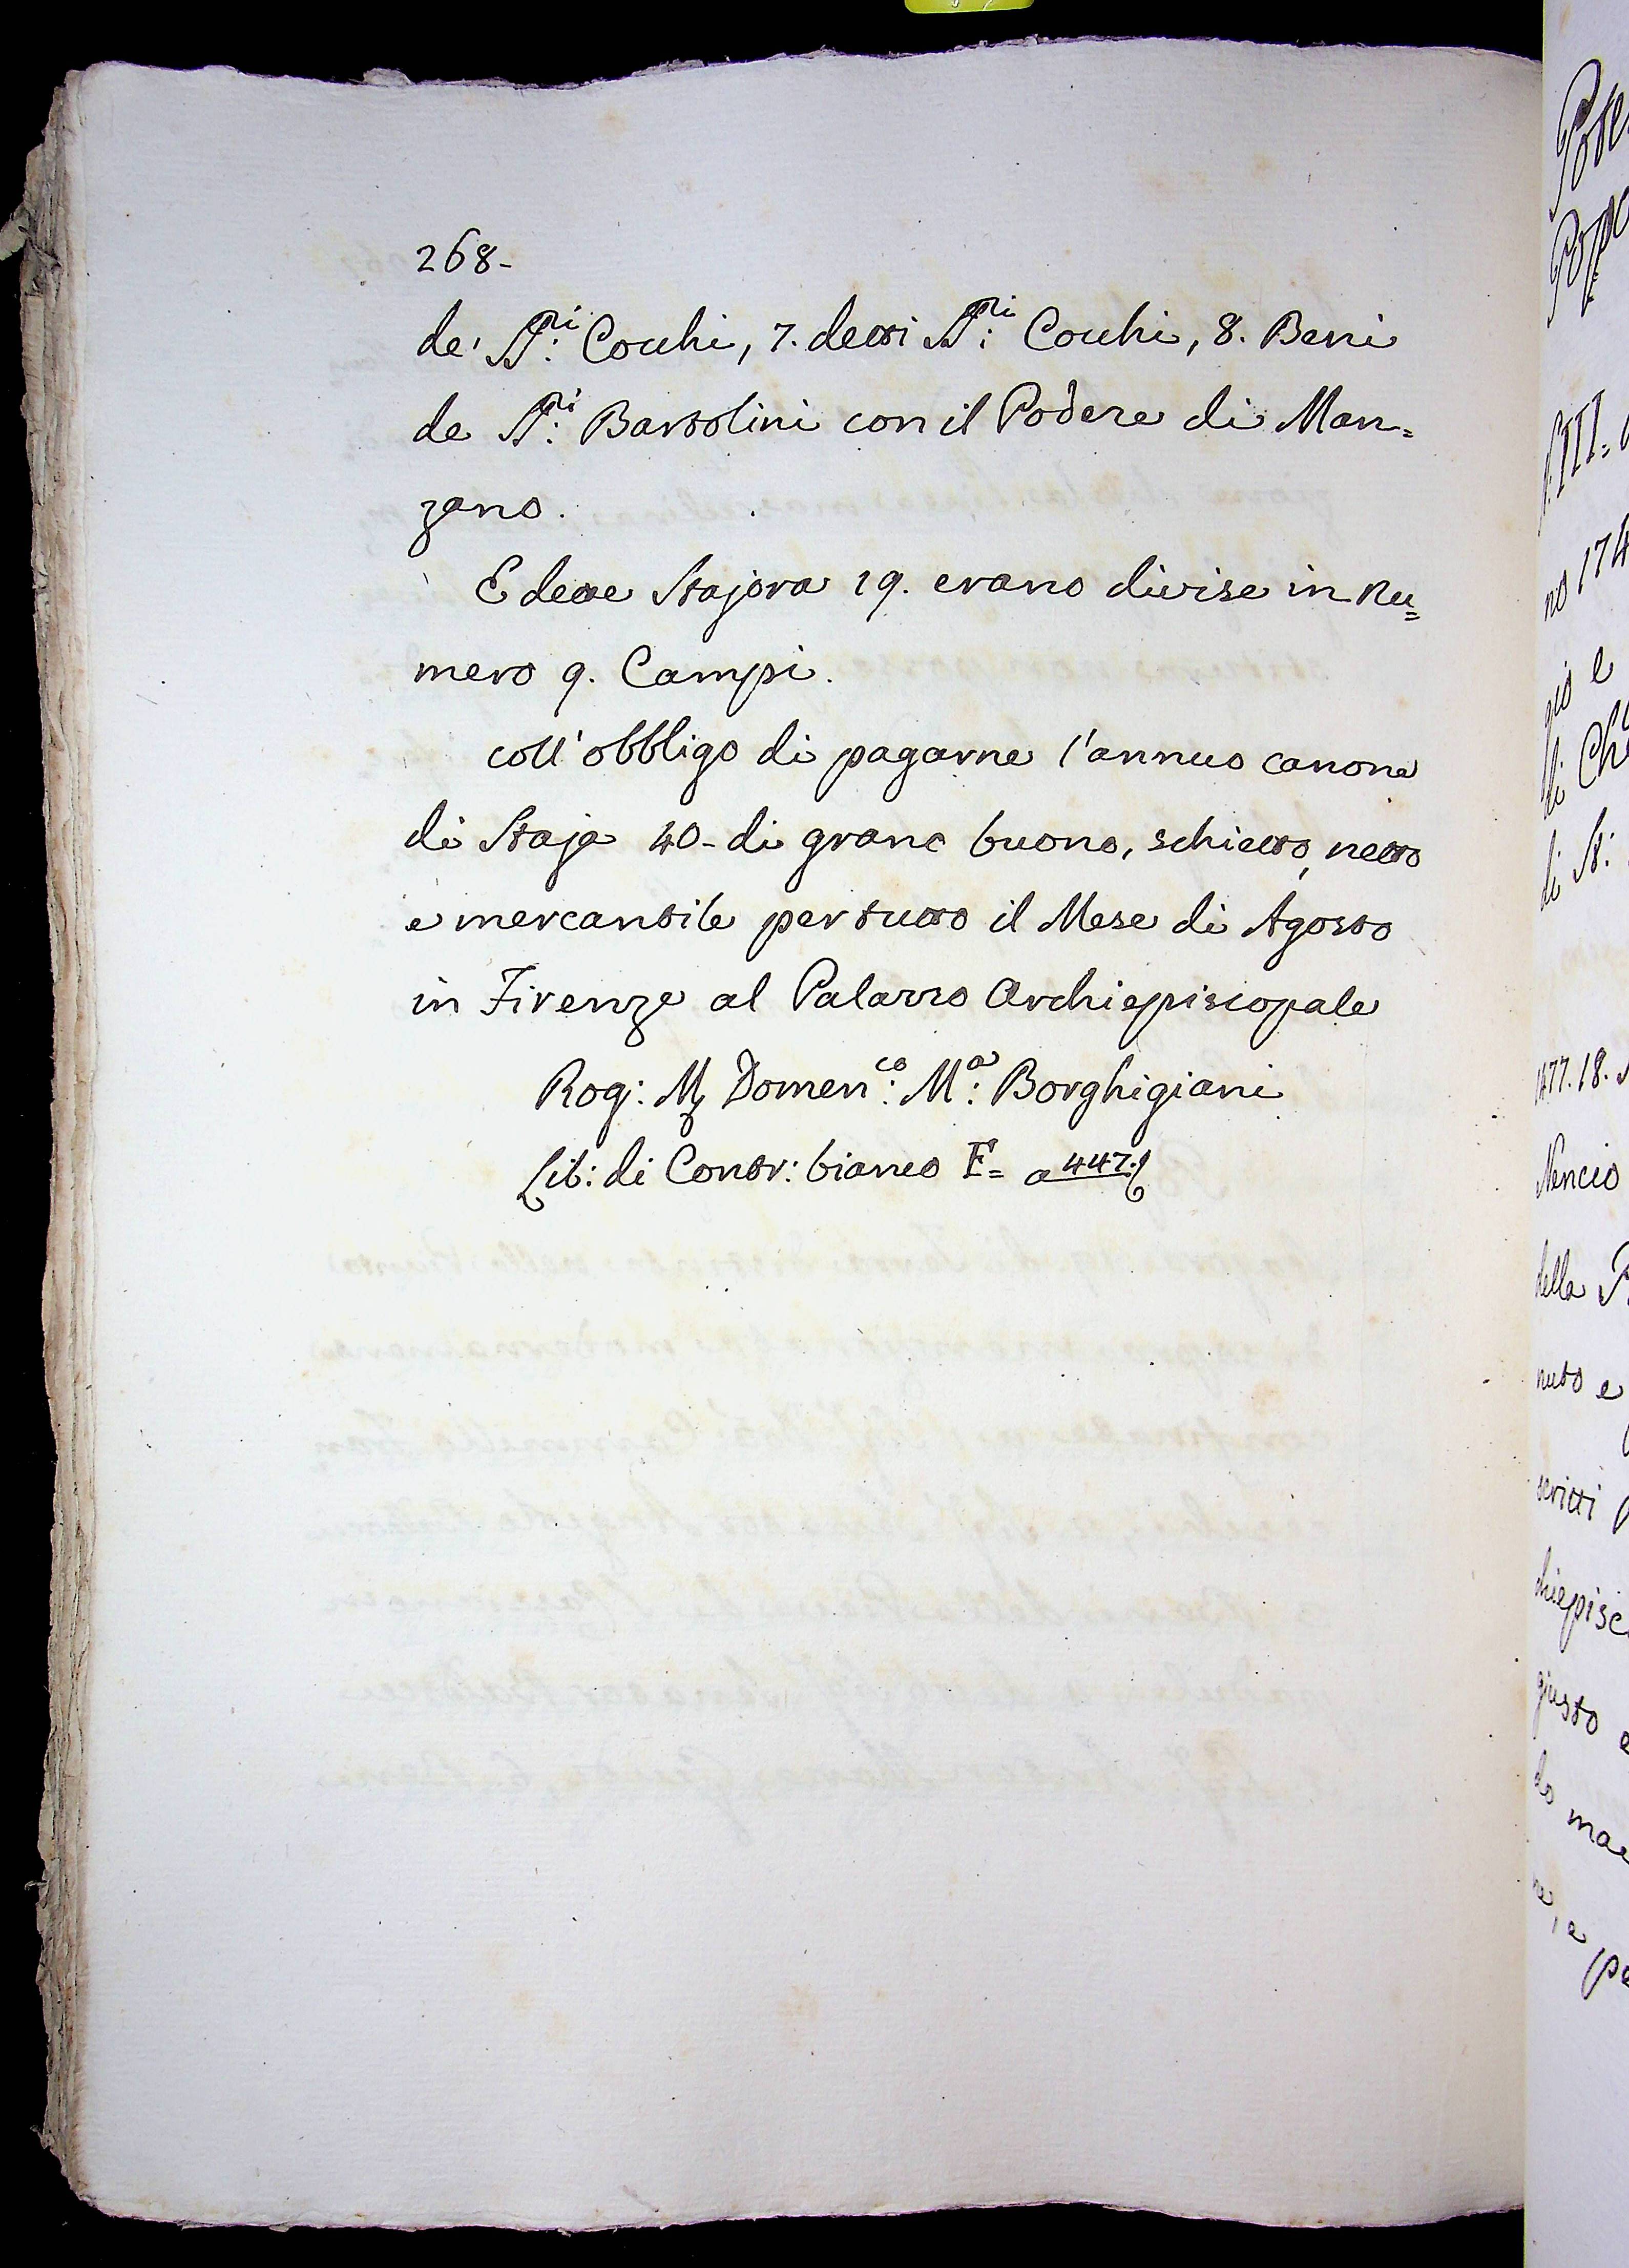 268-
de' SS:ri Cocchi, 7. detti SS:ri Cocchi, 8. Beni
de SS:ri Bartolini con il Podere di Man=
zano.
E dette Stajora 19. erano divise in Nu=
mero 9. Campi.
coll'obbligo di pagarne l'annuo canone
di Staja 40- di grano buono, schietto, netto
e mercantile per tutto il Mese di Agosto
in Firenze al Palazzo Archiepiscopale
Rog: M Domen:co M:a Borghigiani
Lib: di Contr: bianco F= a 447.
no 174
gio e
di Ch
di S:
477.18.
Nencio
della P
nuto e
scritti
chiepisc
giusto e
do ma
e, e pe